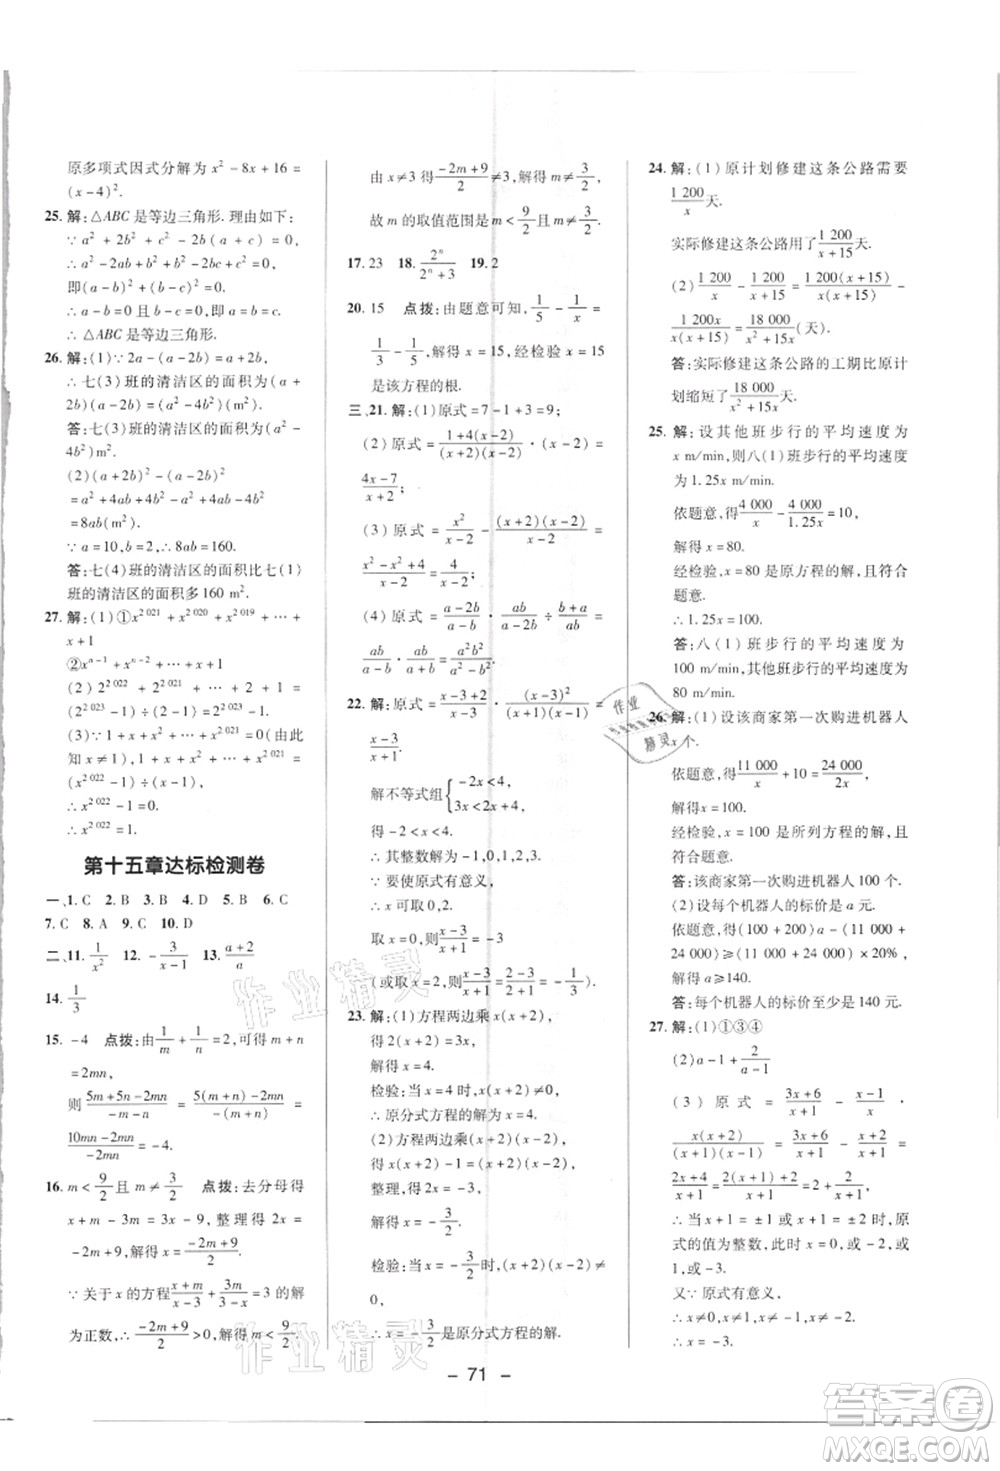 原多项式因式分解为 x² − 8x + 16 =
(x − 4)².
25. 解:△ABC 是等边三角形. 理由如下:
∵ a² + 2b² + c² − 2b(a + c) = 0,
∴ a² − 2ab + b² + b² − 2bc + c² = 0,
即(a − b)² + (b − c)² = 0,
∴ a − b = 0 且 b − c = 0, 即 a = b = c.
∴ △ABC 是等边三角形.
26. 解:(1)∵ 2a − (a − 2b) = a + 2b,
∴ 七(3)班的清洁区的面积为(a +
2b)(a − 2b) = (a² − 4b²)(m²).
答:七(3)班的清洁区的面积为(a² −
4b²)m².
(2)(a + 2b)² − (a − 2b)²
= a² + 4ab + 4b² − a² + 4ab − 4b²
= 8ab(m²).
∵ a = 10, b = 2, ∴ 8ab = 160.
答:七(4)班的清洁区的面积比七(1)
班的清洁区的面积多 160 m².
27. 解:(1)①x^2 021 + x^2 020 + x^2 019 + … +
x + 1
②x^(n−1) + x^(n−2) + … + x + 1
(2)(2^2 022 + 2^2 021 + … + 2 + 1) × (2 −
1) ÷ (2 − 1) = (2^2 023 − 1) ÷ (2 − 1) = 2^2 023 − 1.
(3)∵ x ≠ 1, 1 + x + x² + … + x^2 021 =
(x^2 022 − 1) ÷ (x − 1) = 0,
∴ x^2 022 − 1 = 0.
∴ x^2 022 = 1.
第十五章达标检测卷
一、1. C 2. B 3. B 4. D 5. B 6. C
7. C 8. A 9. C 10. D
二、11. 1/x² 12. −3/(x−1) 13. (a+2)/a
14. 1/3
15. −4 点拨:由 1/m + 1/n = 2, 可得 m + n
= 2mn,
则 (5m+5n−2mn)/(−m−n) = (5(m+n)−2mn)/(−(m+n)) =
(10mn−2mn)/(−2mn) = −4.
16. m < 9/2 且 m ≠ 3/2 点拨:去分母得
x + m − 3m = 3x − 9, 整理得 2x =
−2m + 9, 解得 x = (−2m+9)/2.
∵ 关于 x 的方程 (x+m)/(x−3) + 3m/(3−x) = 3 的解
为正数, ∴ (−2m+9)/2 > 0, 解得 m < 9/2.
由 x ≠ 3 得 (−2m+9)/2 ≠ 3, 解得 m ≠ 3/2,
故 m 的取值范围是 m < 9/2 且 m ≠ 3/2.
17. 23 18. 2ⁿ/(2ⁿ+3) 19. 2
20. 15 点拨:由题意可知, 1/5 − 1/x =
1/3 − 1/5, 解得 x = 15, 经检验 x = 15
是该方程的根.
三、21. 解:(1)原式 = 7 − 1 + 3 = 9;
(2)原式 = (1+4(x−2))/((x+2)(x−2)) · (x − 2) =
(4x−7)/(x+2);
(3)原式 = x²/(x−2) − ((x+2)(x−2))/(x−2) =
(x²−x²+4)/(x−2) = 4/(x−2);
(4)原式 = (a−2b)/(a−b) · ab/(a−2b) ÷ (b+a)/ab =
ab/(a−b) · ab/(a+b) = a²b²/(a²−b²).
22. 解:原式 = (x−3+2)/(x−3) · (x−3)²/((x+1)(x−1)) =
(x−3)/(x+1).
解不等式组{−2x < 4, 3x < 2x + 4,
得 −2 < x < 4,
∴ 其整数解为 −1, 0, 1, 2, 3.
∵ 要使原式有意义,
∴ x 可取 0, 2.
取 x = 0, 则原式 = (x−3)/(x+1) = −3
(或取 x = 2, 则原式 = (x−3)/(x+1) = −1/3).
23. 解:(1)方程两边乘 x(x + 2),
得 2(x + 2) = 3x,
解得 x = 4.
检验:当 x = 4 时, x(x + 2) ≠ 0,
∴ 原分式方程的解为 x = 4.
(2)方程两边乘(x + 2)(x − 2),
得 x(x + 2) − 1 = (x + 2)(x − 2),
整理, 得 2x = −3,
解得 x = −3/2.
检验:当 x = −3/2 时, (x + 2)(x − 2) ≠
0,
∴ x = −3/2 是原分式方程的解.
24. 解:(1)原计划修建这条公路需要
1 200/x 天.
实际修建这条公路用了 1 200/(x+15) 天.
(2) 1 200/x − 1 200/(x+15) = 1 200(x+15)/(x(x+15)) −
1 200x/(x(x+15)) = 18 000/(x²+15x) (天).
答:实际修建这条公路的工期比原计
划缩短了 18 000/(x²+15x) 天.
25. 解:设其他班步行的平均速度为
x m/min, 则八(1)班步行的平均速度
为 1. 25x m/min.
依题意, 得 4 000/x − 4 000/1. 25x = 10,
解得 x = 80.
经检验, x = 80 是原方程的解, 且符合
题意.
∴ 1. 25x = 100.
答:八(1)班步行的平均速度为
100 m/min, 其他班步行的平均速度为
80 m/min.
26. 解:(1)设该商家第一次购进机器人
x 个.
依题意, 得 11 000/x + 10 = 24 000/2x,
解得 x = 100.
经检验, x = 100 是所列方程的解, 且
符合题意.
答:该商家第一次购进机器人 100 个.
(2)设每个机器人的标价是 a 元.
依题意, 得(100 + 200)a − (11 000 +
24 000) ≥ (11 000 + 24 000) × 20%,
解得 a ≥ 140.
答:每个机器人的标价至少是 140 元.
27. 解:(1)①③④
(2)a − 1 + 2/(a−1)
(3)原式 = (3x+6)/(x+1) − (x−1)/x ·
x(x+2)/((x+1)(x−1)) = (3x+6)/(x+1) − (x+2)/(x+1) =
(2x+4)/(x+1) = (2(x+1)+2)/(x+1) = 2 + 2/(x+1),
∴ 当 x + 1 = ±1 或 x + 1 = ±2 时, 原
式的值为整数, 此时 x = 0 或 −2 或
1 或 −3.
又 ∵ 原式有意义,
∴ x ≠ 0, x ≠ 1, x ≠ −1, x ≠ −2,
∴ x = −3.
− 71 −
作业精灵
作业精灵
作业精灵
答案卷
MXQE.COM